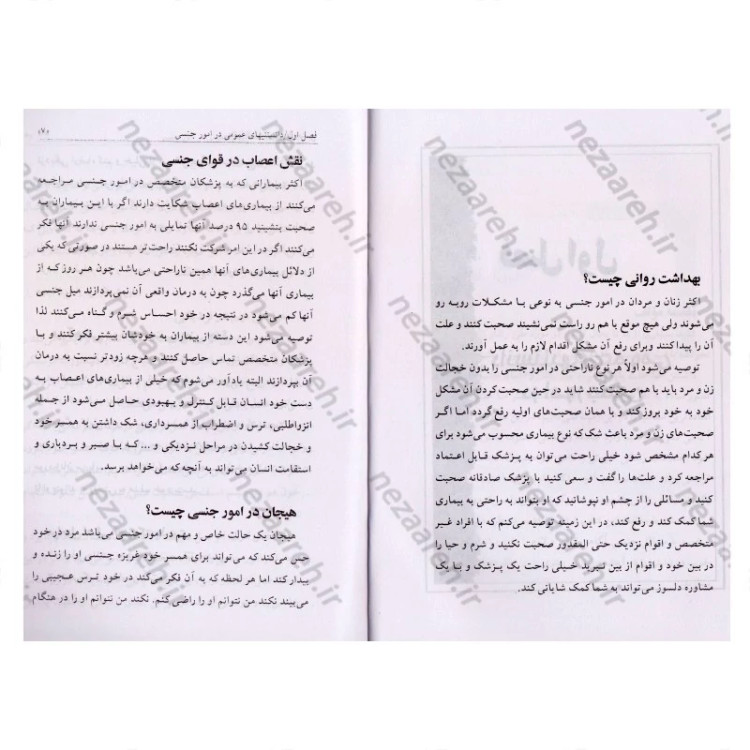 بهداشت روانی چیست؟
اکثر زنان و مردان در امور جنسی به نوعی با مشکلات روبه رو
می‌شوند ولی هیچ موقع با هم رو راست نمی‌نشیند صحبت کنند و علت
آن را پیداکنند وبرای رفع آن مشکل اقدام لازم را به عمل آورند.
توصیه می‌شود اولاً هر نوع ناراحتی در امور جنسی را بدون خجالت
زن و مرد باید با هم صحبت کنند شاید در حین صحبت‌کردن آن مشکل
خود به خود بروز کند و با همان صحبت‌های اولیه رفع گردد اما اگر
صحبت‌های زن و مرد باعث شک که نوع بیماری محسوب می‌شود برای
هر کدام مشخص شود خیلی راحت می‌توان به پزشک قابل اعتماد
مراجعه کرد و علت‌ها را گفت و سعی کنید با پزشک صادقانه صحبت
کنید و مسائلی را از چشم او نپوشانید که او بتواند به راحتی به بیماری
شما کمک کند و رفع کند، در این زمینه توصیه می‌کنم که با افراد غیر
متخصص و اقوام نزدیک حتی المقدور صحبت نکنید و شرم و حیا را
در بین خود و اقوام از بین نبرید خیلی راحت یک پزشک و یا یک
مشاوره دلسوز می‌تواند به شما کمک شایانی کند.
فصل اول/دانستنیهای عمومی در امور جنسی «۷»
نقش اعصاب در قوای جنسی
اکثر بیمارانی که به پزشکان متخصص در امور جنسی مراجعه
می‌کنند از بیماری‌های اعصاب شکایت دارند اگر با این بیماران به
صحبت بنشینید ۹۵ درصد آنها تمایلی به امور جنسی ندارند آنها فکر
می‌کنند اگر در این امر شرکت نکنند راحت‌تر هستند در صورتی که یکی
از دلائل بیماری‌های آنها همین ناراحتی می‌باشد چون هر روز که از
بیماری آنها می‌گذرد چون به درمان واقعی آن نمی‌پردازند میل جنسی
آنها کم می‌شود در نتیجه در خود احساس شرم و گناه می‌کنند لذا
توصیه می‌شود این دسته از بیماران به خودشان بیشتر فکر کنند و با
پزشکان متخصص تماس حاصل کنند و هرچه زودتر نسبت به درمان
آن بپردازند البته یادآور می‌شوم که خیلی از بیماری‌های اعصاب به
دست خود انسان قابل کنترل و بهبودی حاصل می‌شود از جمله
انزواطلبی، ترس و اضطراب از همسرداری، شک داشتن به همسر خود
و خجالت کشیدن در مراحل نزدیکی و ... که با صبر و بردباری و
استقامت انسان می‌تواند به آنچه که می‌خواهد برسد.
هیجان در امور جنسی چیست؟
هیجان یک حالت خاص و مهم در امور جنسی می‌باشد مرد در خود
حس می‌کند که می‌تواند برای همسر خود غریزه جنسی او را زنده و
بیدار کند اما هر لحظه که به آن فکر می‌کند در خود ترس عجیبی را
می‌بیند نکند من نتوانم او را راضی کنم. نکند من نتوانم او را در هنگام
nezaareh.ir
nezaareh.ir
nezaareh.ir
nezaareh.ir
nezaareh.ir
nezaareh.ir
nezaareh.ir
nezaareh.ir